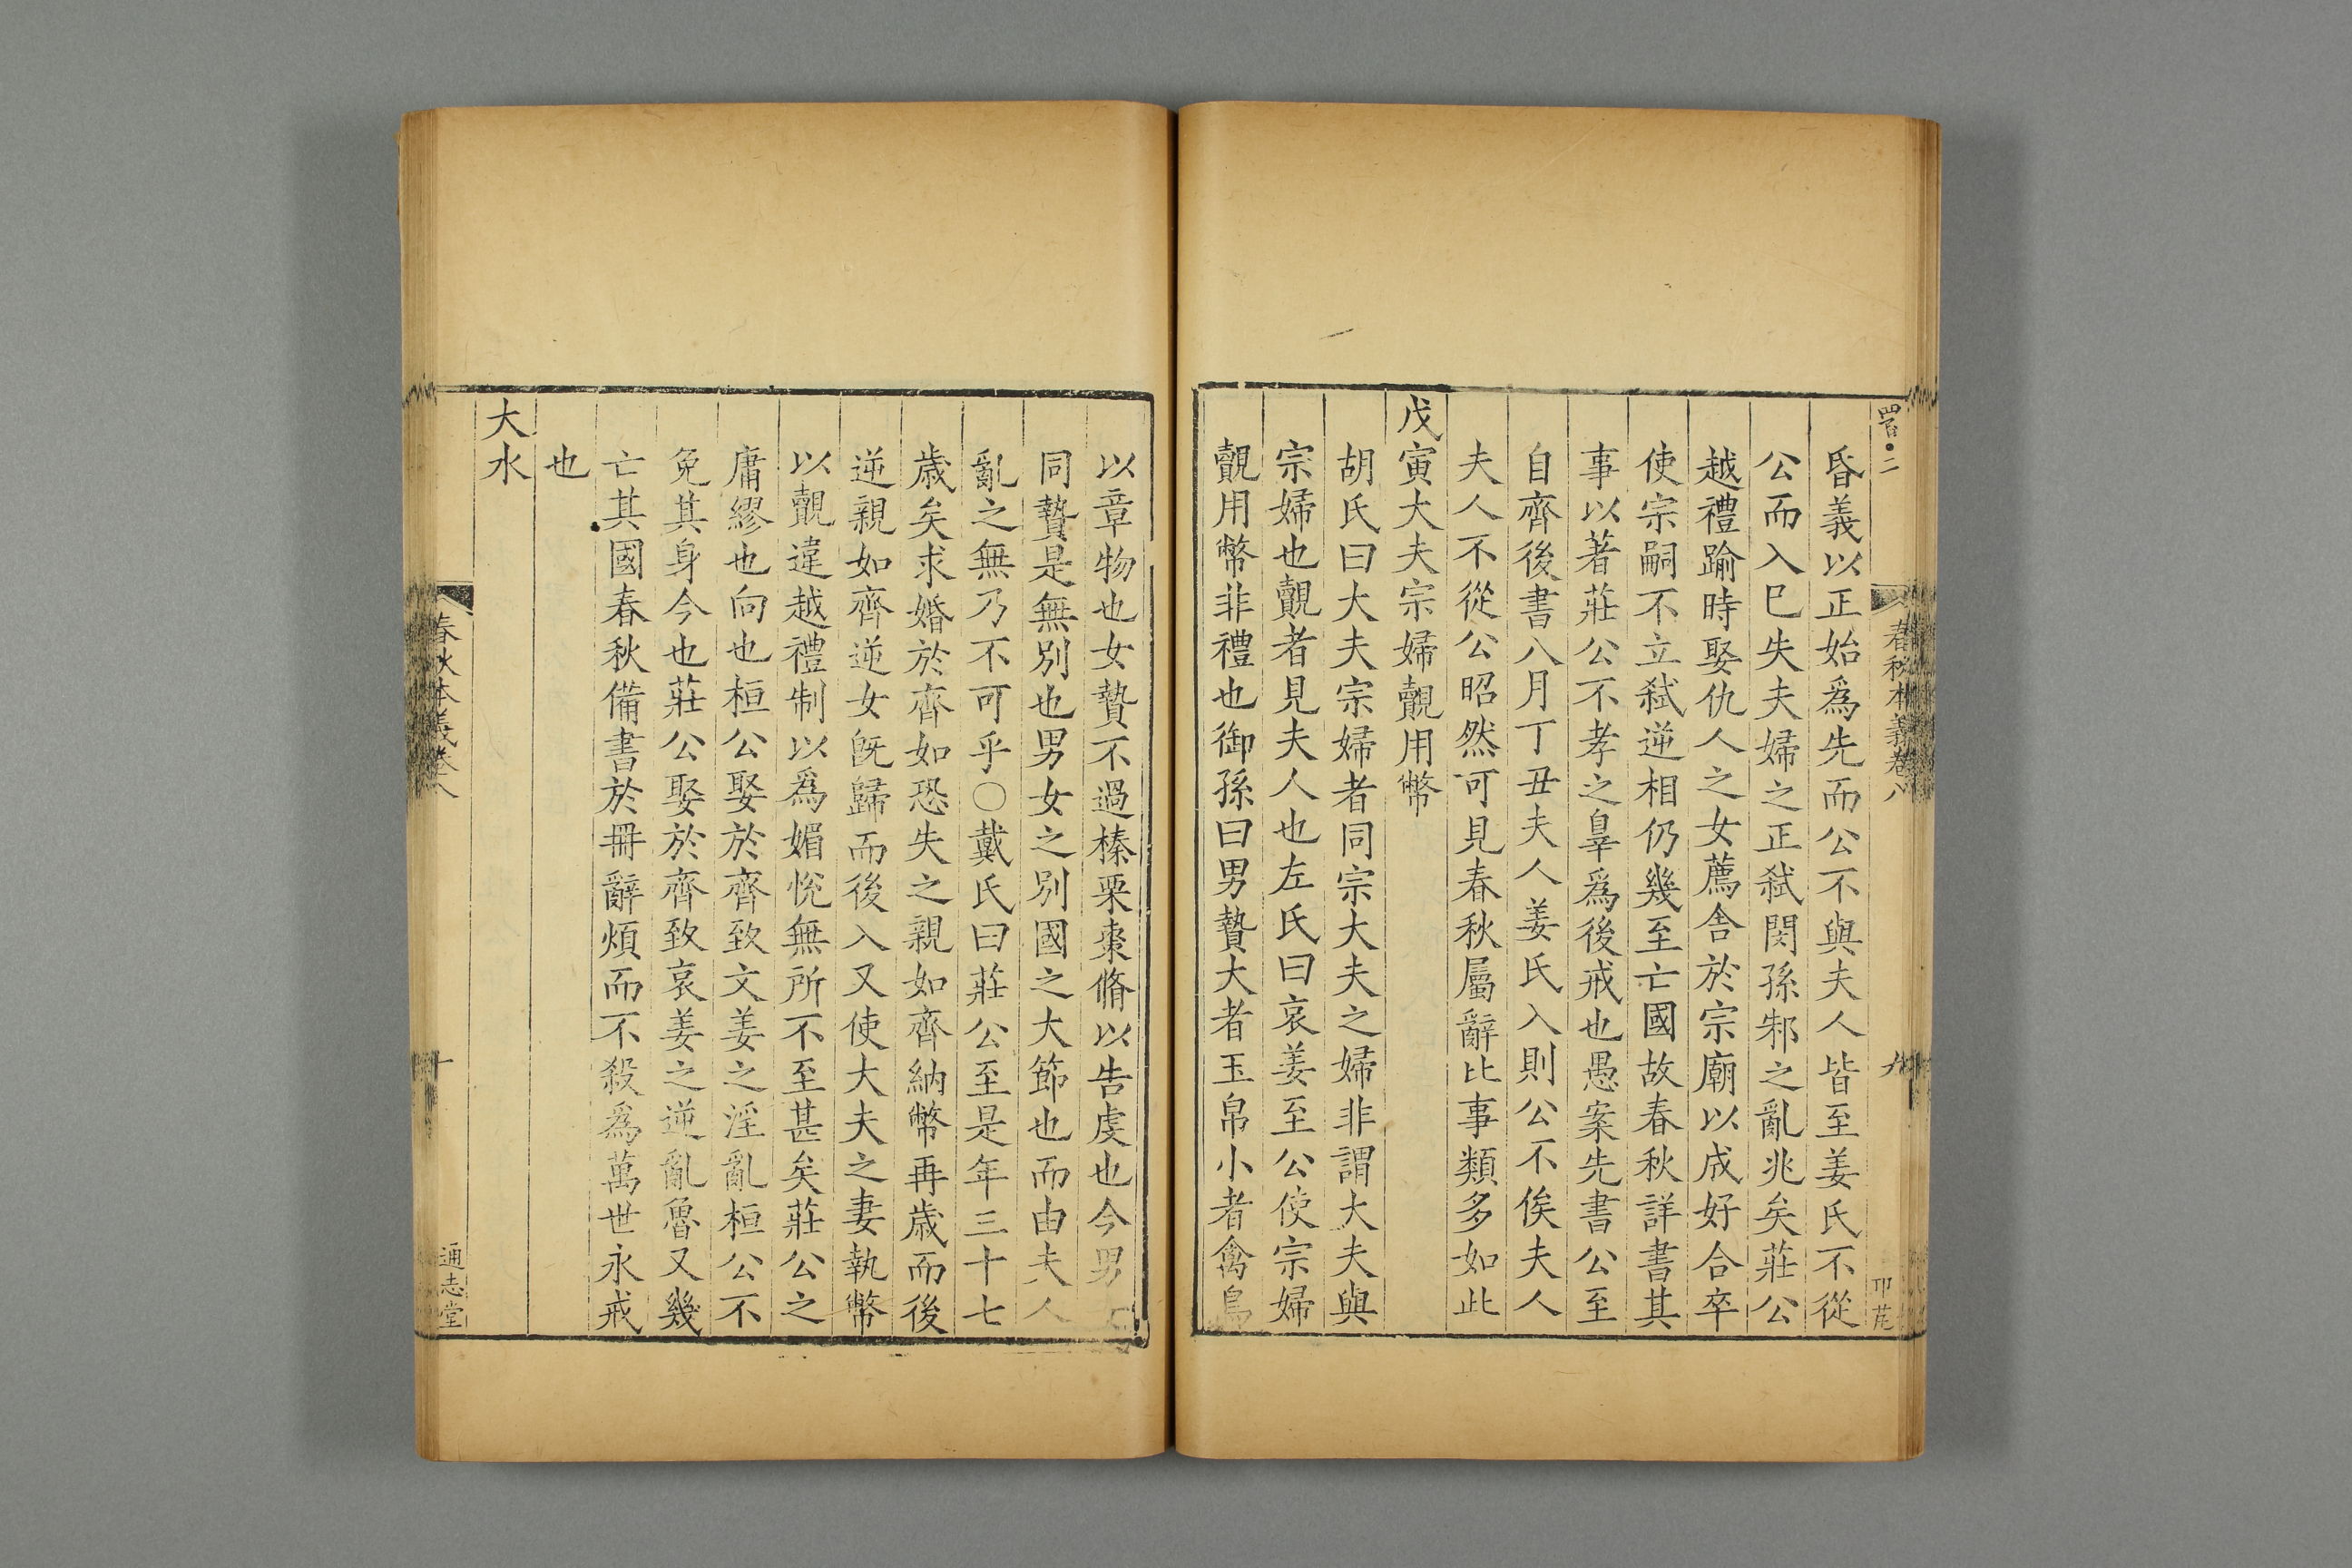 春秋本義卷八
九
昏義以正始爲先而公不與夫人皆至姜氏不從
公而入巳失夫婦之正弑閔孫邾之亂兆矣莊公
越禮踰時娶仇人之女薦舎於宗廟以成好合卒
使宗嗣不立弑逆相仍幾至亡國故春秋詳書其
事以著莊公不孝之辠爲後戒也愚案先書公至
自齊後書八月丁丑夫人姜氏入則公不俟夫人
夫人不從公昭然可見春秋屬辭比事類多如此
戊寅大夫宗婦覿用幣
胡氏曰大夫宗婦者同宗大夫之婦非謂大夫與
宗婦也覿者見夫人也左氏曰哀姜至公使宗婦
覿用幣非禮也御孫曰男贄大者玉帛小者禽鳥
以章物也女贄不過榛栗棗脩以告虔也今男女
同贄是無別也男女之別國之大節也而由夫人
亂之無乃不可乎○戴氏曰莊公至是年三十七
歳矣求婚於齊如恐失之親如齊納幣再歳而後
逆親如齊逆女旣歸而後入又使大夫之妻執幣
以覿違越禮制以爲媚恱無所不至甚矣莊公之
庸繆也向也桓公娶於齊致文姜之淫亂桓公不
免其身今也莊公娶於齊致哀姜之逆亂魯又幾
亡其國春秋備書於冊辭煩而不殺爲萬世永戒
也
大水
春秋本義卷八
十
通志堂